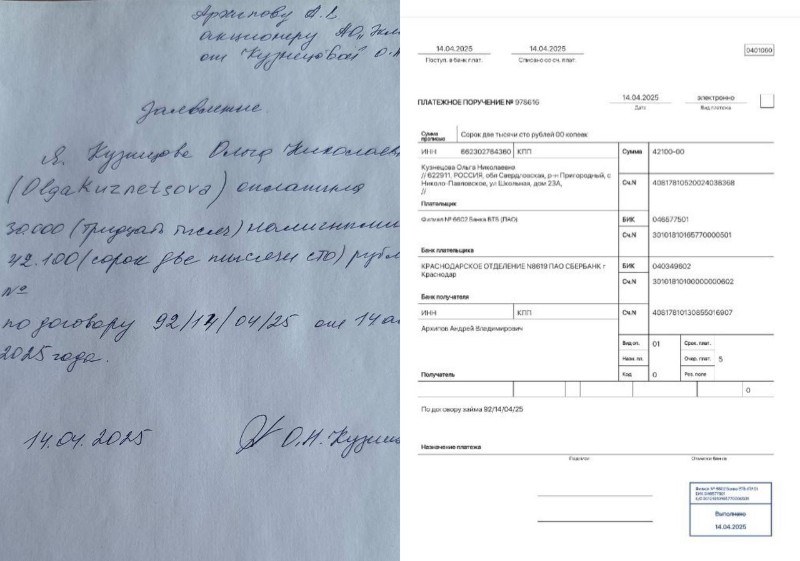 Архипову А.В.
акционеру АО
от Кузнецовой О.Н.
Заявление
Я, Кузнецова Ольга Николаев
(OlgaKuznetsova) оплатила
30.000 (тридцать тысяч) наличными
42.100 (сорок две тысячи сто) рубл
№
по договору 92/14/04/25 от 14 ап
2025 года.
14.04.2025 О.Н. Кузне
14.04.2025 14.04.2025 0401060
Поступ. в банк плат. Списано со сч. плат.
ПЛАТЕЖНОЕ ПОРУЧЕНИЕ № 978616 14.04.2025 электронно
Дата Вид платежа
Сумма прописью Сорок две тысячи сто рублей 00 копеек
ИНН 662302784360 КПП Сумма 42100-00
Кузнецова Ольга Николаевна
// 622911, РОССИЯ, обл Свердловская, р-н Пригородный, с
Николо-Павловское, ул Школьная, дом 23А,
//
Сч.N 40817810520024038368
Плательщик
Филиал № 6602 Банка ВТБ (ПАО) БИК 046577501
Сч.N 30101810165770000501
Банк плательщика
КРАСНОДАРСКОЕ ОТДЕЛЕНИЕ N8619 ПАО СБЕРБАНК г
Краснодар
БИК 040349602
Сч.N 30101810100000000602
Банк получателя
ИНН КПП Сч.N 40817810130855016907
Архипов Андрей Владимирович
Вид оп. 01 Срок. плат.
Назн. пл. Очер. плат. 5
Получатель Код 0 Рез. поле
0
По договору займа 92/14/04/25
Назначение платежа
Подписи Отметки банка
Филиал № 6602 Банка ВТБ (ПАО)
БИК 046577501
Выполнено
14.04.2025